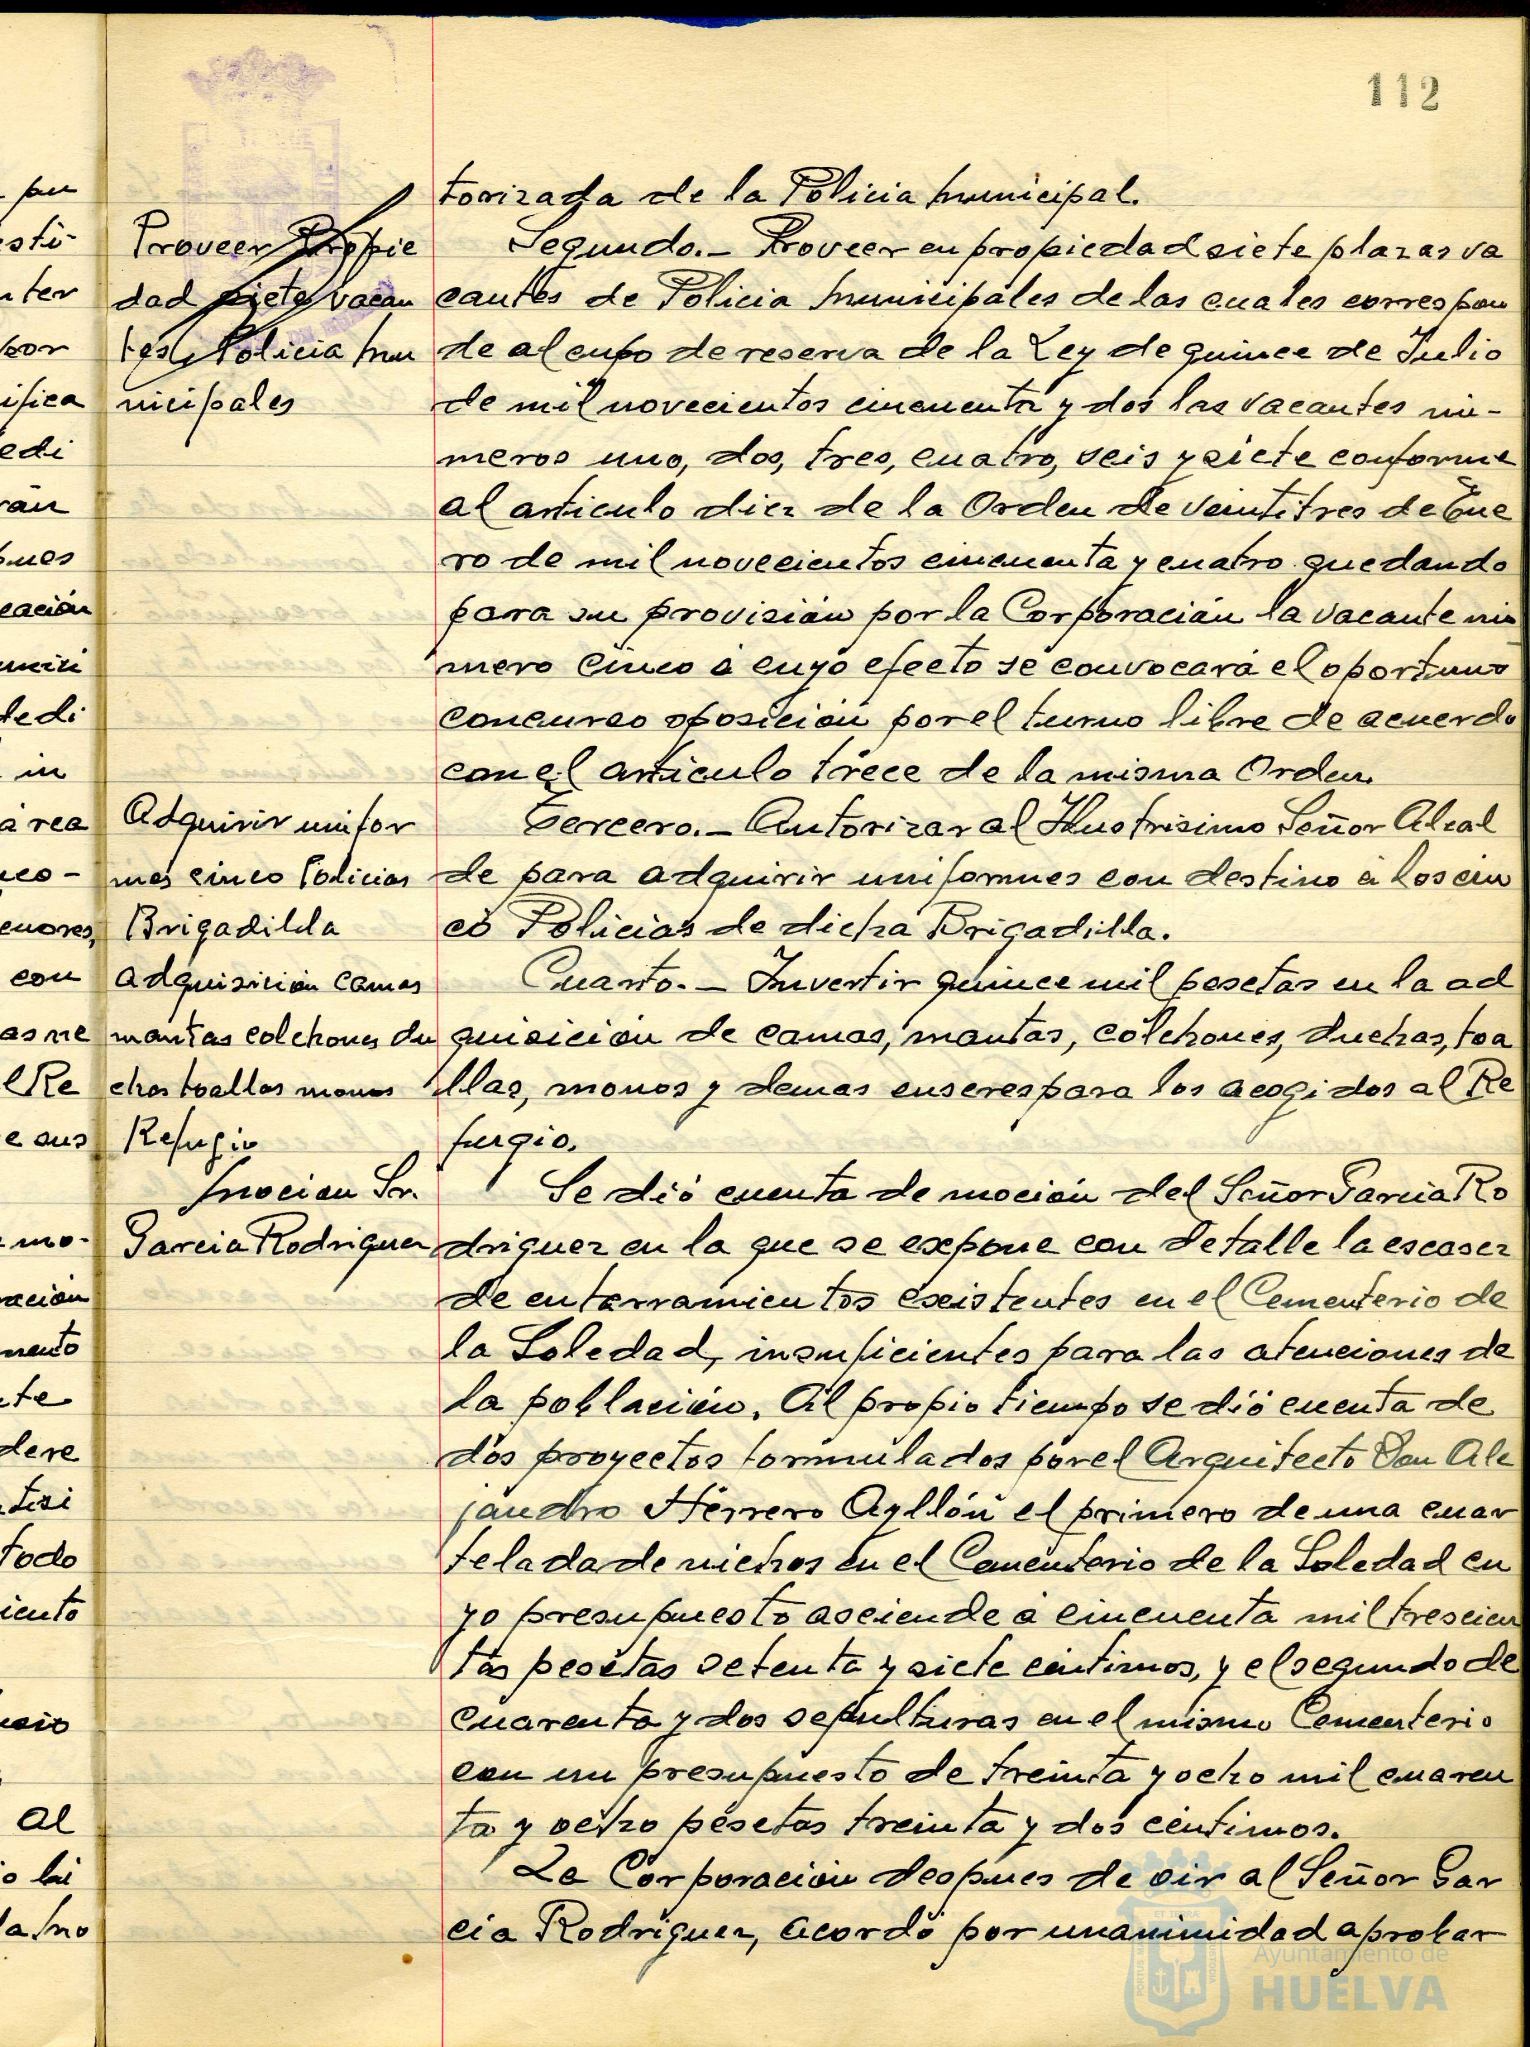 112
torizada de la Policia municipal.
Proveer Propie
dad siete vacan
tes Policia mu
nicipales
Segundo.- Proveer en propiedad siete plazas va
cantes de Policia municipales de las cuales correspon
de al cupo de reserva de la Ley de quince de Julio
de mil novecientos cincuenta y dos las vacantes nu-
meros uno, dos, tres, cuatro, seis y siete conforme
al articulo diez de la Orden de veintitres de Ene
ro de mil novecientos cincuenta y cuatro quedando
para su provisión por la Corporación la vacante nu
mero cinco á cuyo efecto se convocará el oportuno
concurso oposición por el turno libre de acuerdo
con el articulo trece de la misma Orden.
Adquirir unifor
mes cinco Policias
Brigadilla
Tercero.- Autorizar al Ilustrisimo Señor Alcal
de para adquirir uniformes con destino á los cin
co Policias de dicha Brigadilla.
adquisición camas
mantas colchones du
chas toallas monos
Refugio
Cuarto.- Invertir quince mil pesetas en la ad
quisición de camas, mantas, colchones, duchas, toa
llas, monos y demas enseres para los acogidos al Re
fugio.
moción Sr.
Garcia Rodriguez
Se dió cuenta de moción del Señor Garcia Ro
driguez en la que se expone con detalle la escasez
de enterramientos existentes en el Cementerio de
la Soledad, insuficientes para las atenciones de
la población. Al propio tiempo se dió cuenta de
dos proyectos formulados por el Arquitecto Don Ale
jandro Herrero Ayllón el primero de una cuar
telada de nichos en el Cementerio de la Soledad cu
yo presupuesto asciende á cincuenta mil trescien
tas pesetas setenta y siete céntimos, y el segundo de
cuarenta y dos sepulturas en el mismo Cementerio
con un presupuesto de treinta y ocho mil cuaren
ta y ocho pesetas treinta y dos céntimos.
La Corporación despues de oir al Señor Gar
cia Rodriguez, acordó por unanimidad aprobar
Ayuntamiento de
HUELVA